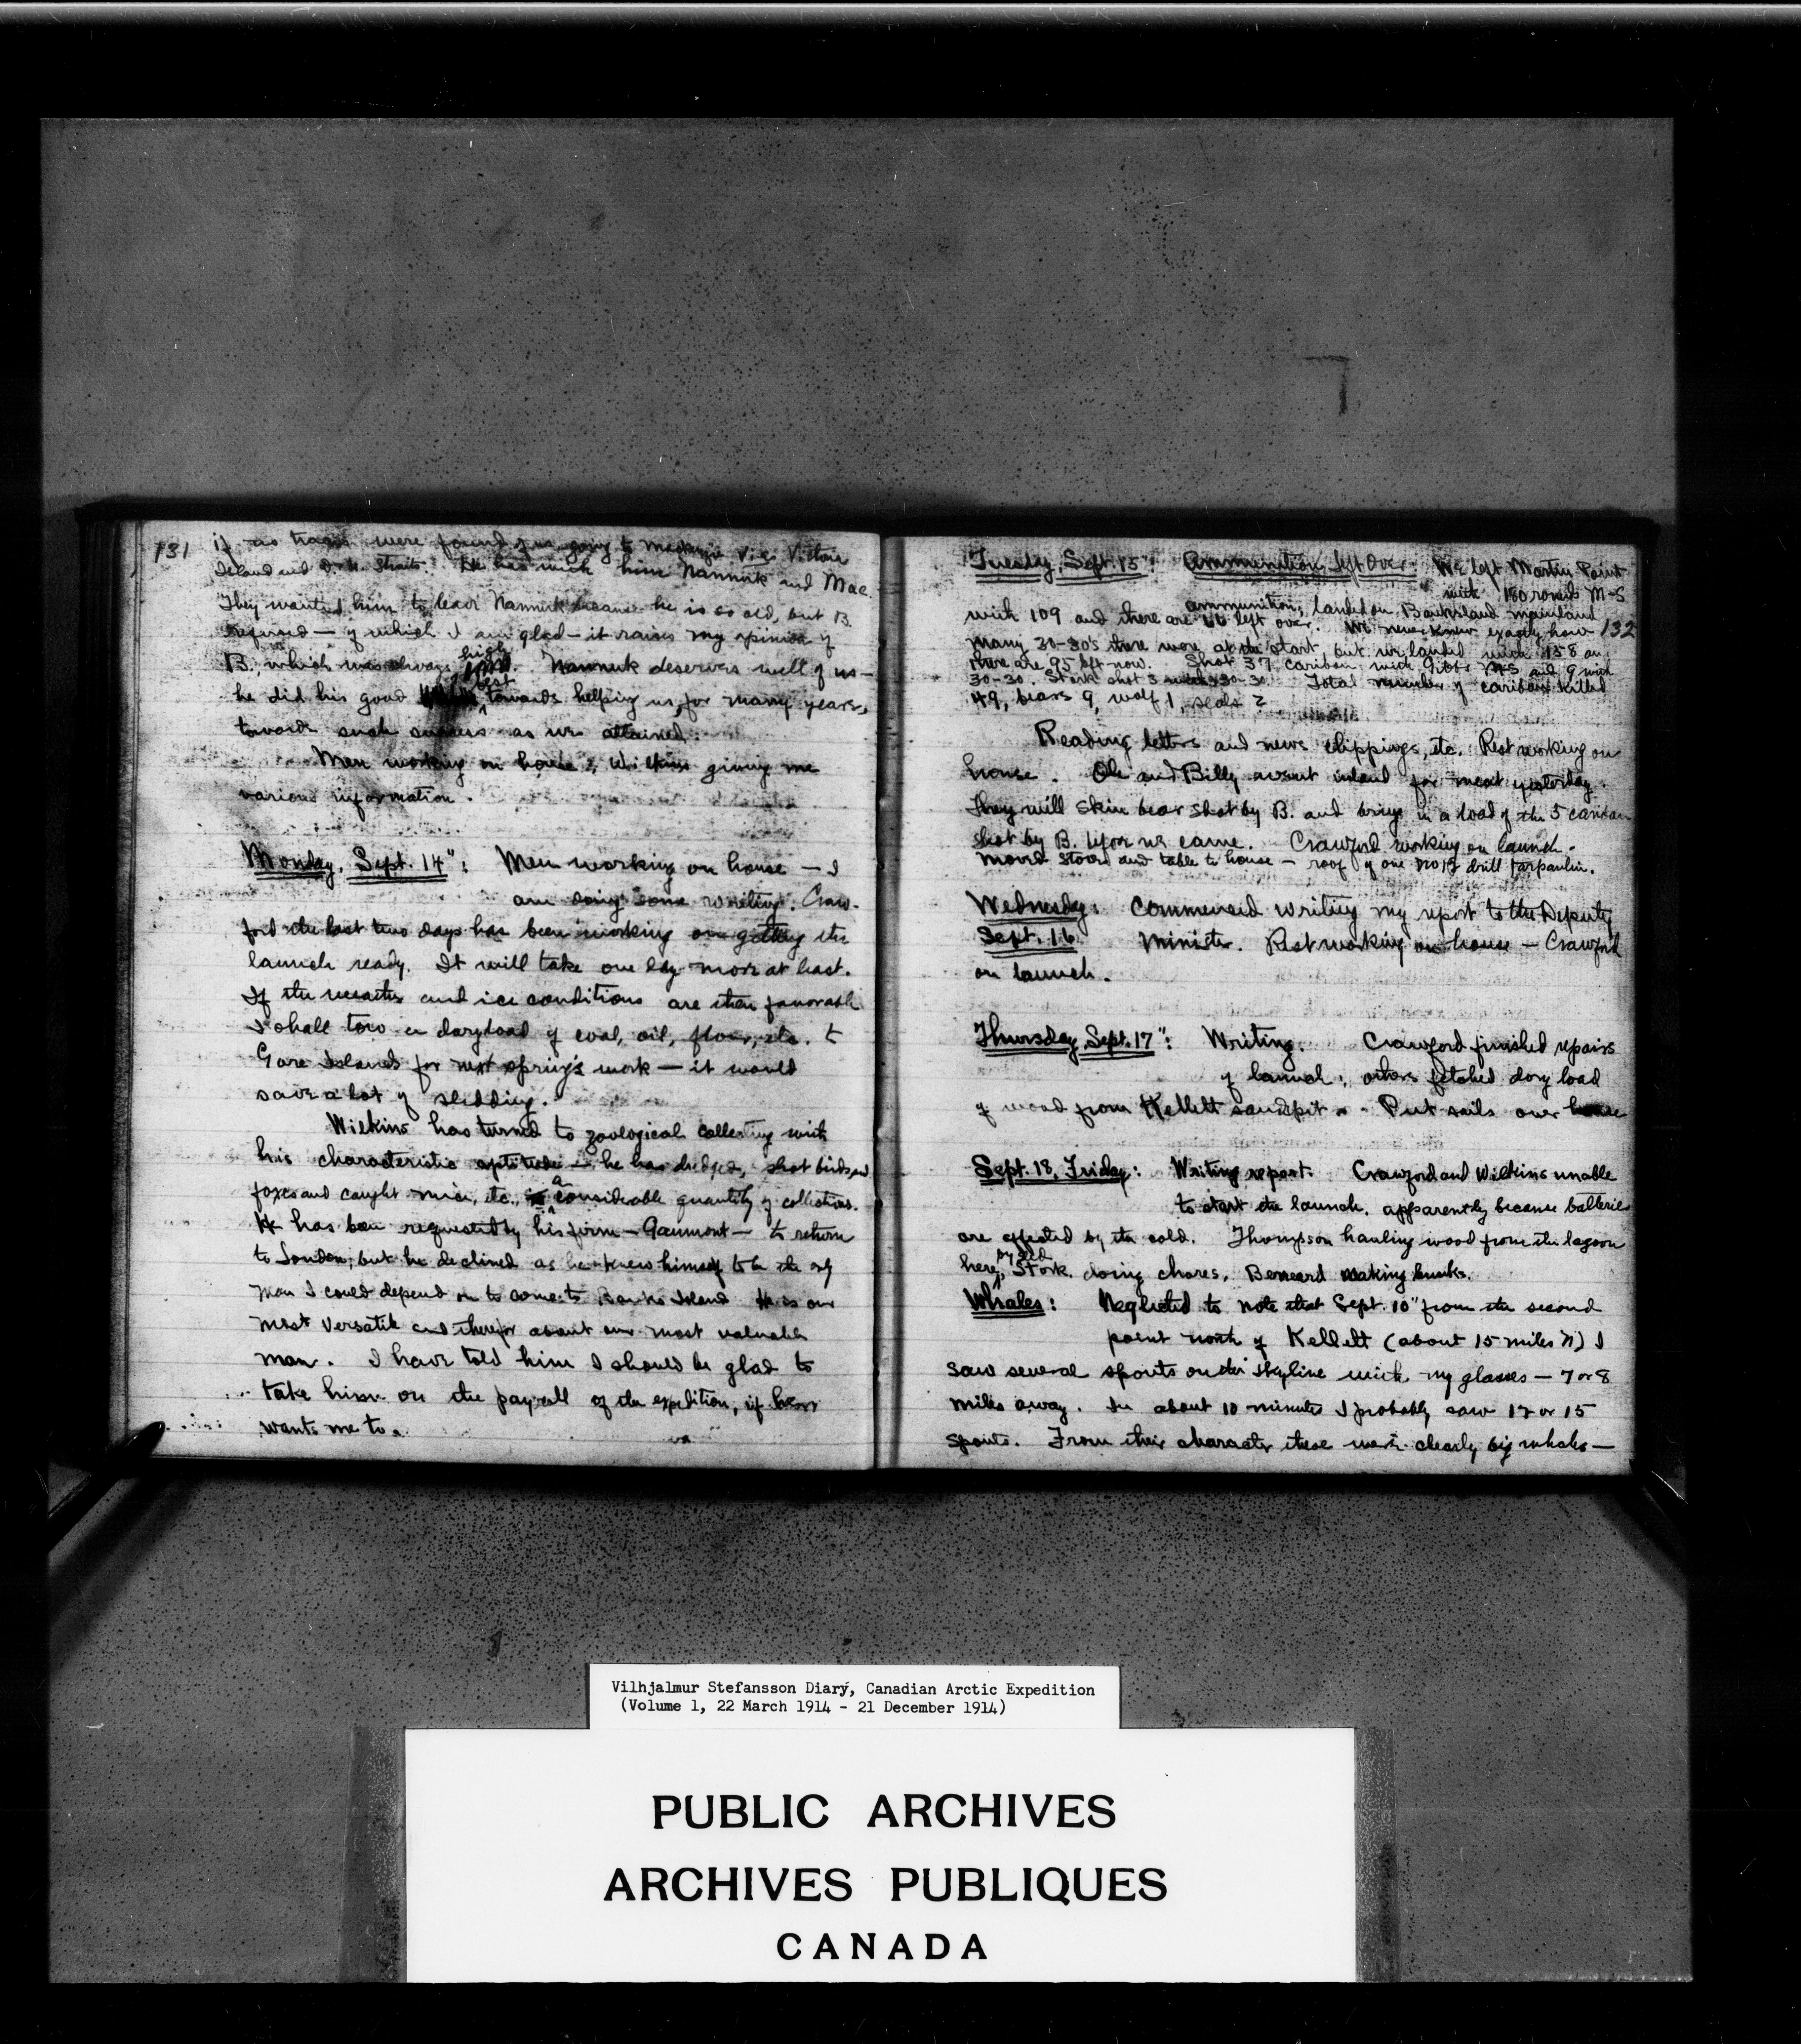 131
if no traces were found of us going to Mackenzie via Victoria
Island and D. & U. Straits. He has with him Nannuk and Mac.
They wanted him to leave Nannuk because he is so old, but B.
refused — of which I am glad — it raises my opinion of
B., which was always high. Nannuk deserves well of us —
he did his good best towards helping us, for many years,
towards such success as we attained.
Men working on house, Wilkins giving me
various information.
Monday, Sept. 14": Men working on house — I
am doing some writing. Craw-
ford the last two days has been working on getting the
launch ready. It will take one day more at least.
If the weather and ice conditions are then favorable
I shall tow a dory load of coal, oil, flour, etc. to
Gore Islands for next spring's work — it would
save a lot of sledding.
Wilkins has turned to zoological collecting with
his characteristic aptitude — he has dredged, shot birds and
foxes and caught mice, etc., a considerable quantity of collections.
He has been requested by his firm — Gaumont — to return
to London, but he declined as he knew himself to be the only
man I could depend on to come to Banks Island. He is our
most versatile and therefor about our most valuable
man. I have told him I should be glad to
take him on the payroll of the expedition, if he
wants me to.
Tuesday, Sept. 15": Ammunition left over: We left Martin Point
with 180 rounds M-S
ammunition, landed on Banksland mainland
with 109 and there are left over. We never knew exactly how 132
many 30-30's there were at the start, but we landed with 158 and
there are 95 left now. Shot 37 caribou with Gibbs M-S and 9 with
30-30. Stork shot 3 30-30. Total number of caribou killed
49, bears 9, wolf 1, seals 2
Reading letters and news clippings, etc. Rest working on
house. Ole and Billy went inland for meat yesterday.
They will skin bear shot by B. and bring in a load of the 5 caribou
shot by B. before we came. Crawford working on launch.
Moved stove and table to house — roof of one No 12 drill tarpaulin.
Wednesday: Commenced writing my report to the Deputy
Sept. 16 Minister. Rest working on house — Crawford
on launch.
Thursday Sept. 17": Writing. Crawford finished repairs
of launch; others fetched dory load
of wood from Kellett sandspit. Put sails over house
Sept. 18, Friday: Writing report. Crawford and Wilkins unable
to start the launch, apparently because batteries
are affected by the cold. Thompson hauling wood from the lagoon
here, by sled Stork. doing chores, Bernard making bunks.
Whales: Neglected to note that Sept. 10" from the second
point north of Kellett (about 15 miles N) I
saw several spouts on the skyline with my glasses — 7 or 8
miles away. In about 10 minutes I probably saw 12 or 15
spouts. From their character these were clearly big whales —
Vilhjalmur Stefansson Diary, Canadian Arctic Expedition
(Volume 1, 22 March 1914 - 21 December 1914)
PUBLIC ARCHIVES
ARCHIVES PUBLIQUES
CANADA